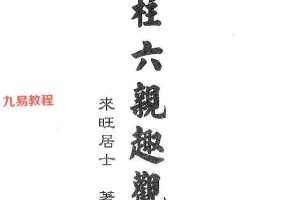 柱六親趣觀
來旺居士 著
九易教程